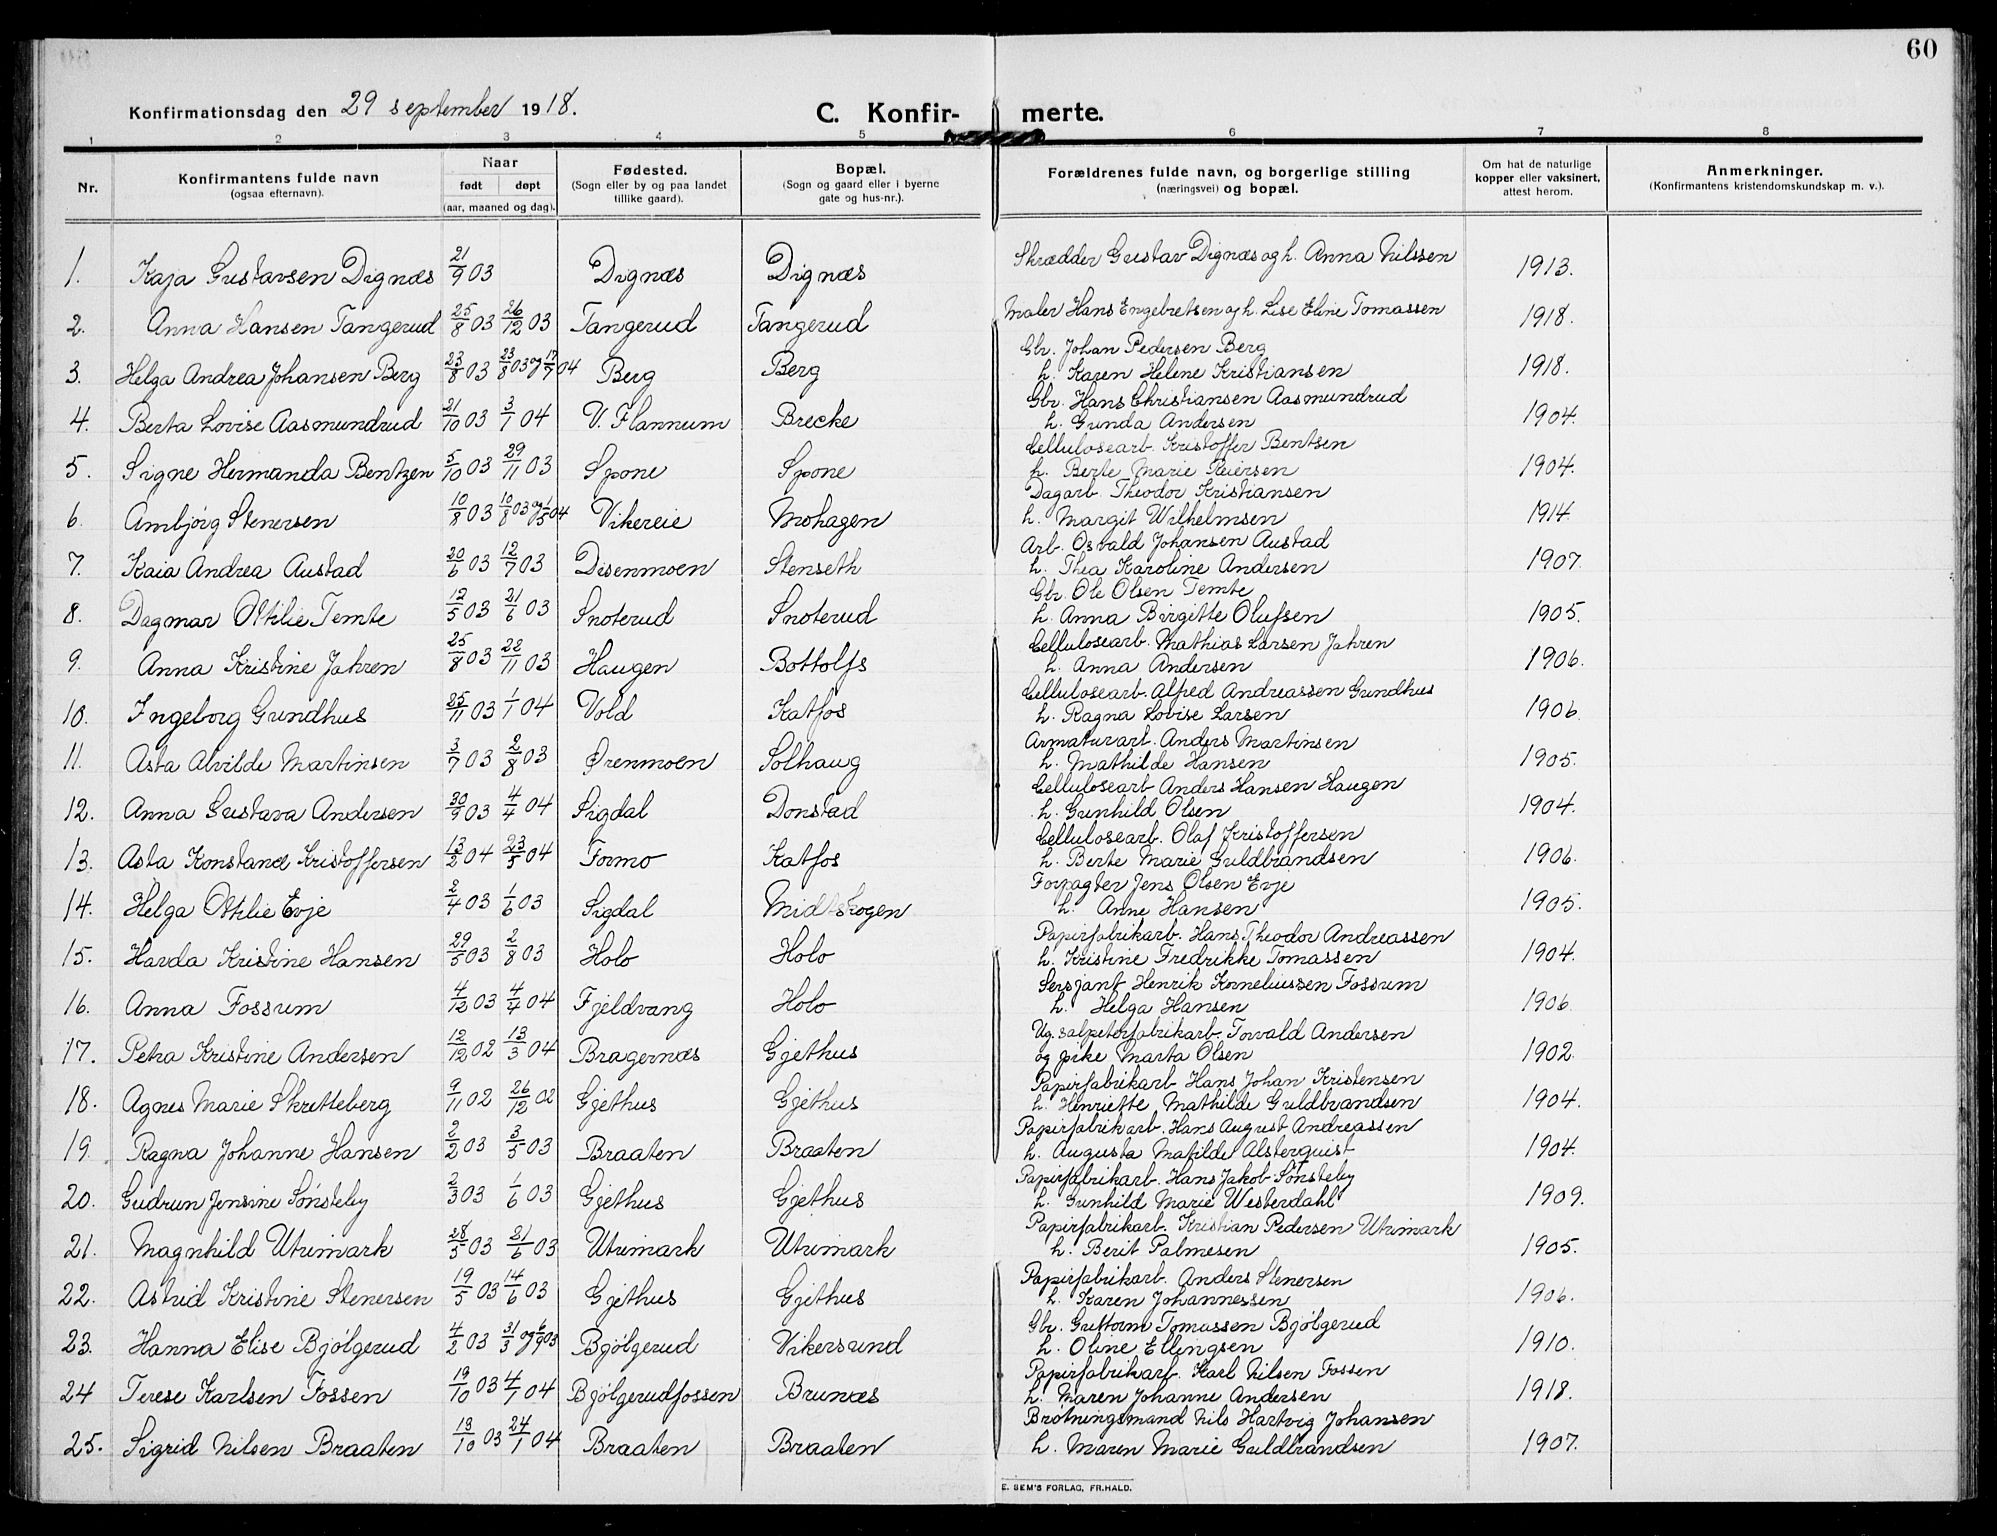 60
Konfirmationsdag den 29 september 1918.
C. Konfir- merte.
1 2 3 4 5 6 7 8
Nr.
Konfirmantens fulde navn
(ogsaa efternavn).
Naar
født døpt
(aar, maaned og dag).
Fødested.
(Sogn eller by og paa landet
tillike gaard).
Bopæl.
(Sogn og gaard eller i byerne
gate og hus-nr.).
Forældrenes fulde navn, og borgerlige stilling
(næringsvei) og bopæl.
Om hat de naturlige
kopper eller vaksinert,
attest herom.
Anmerkninger.
(Konfirmantens kristendomskundskap m. v.).
1. Kaja Gustavsen Dignæs 21/9 03 Dignæs Dignæs Skrædder Gustav Dignæs og h. Anna Nilssen 1913.
2. Anna Hansen Tangerud 25/8 03 26/12 03 Tangerud Tangerud Maler Hans Engebretsen og h. Lise Eline Tomassen 1918.
3. Helga Andrea Johansen Berg 23/8 03 23/8 03 og 17/7 04 Berg Berg Gbr. Johan Pedersen Berg
h. Karen Helene Kristiansen 1918.
4. Berta Lovise Aasmundrud 21/10 03 3/1 04 V. Flannum Brecke Gbr. Hans Christiansen Aasmundrud
h. Gunda Andersen 1904.
5. Signe Hermanda Bentzen 5/10 03 29/11 03 Spone Spone Cellulosearb. Kristoffer Bentsen
h. Berte Marie Reiersen 1904.
6. Ambjörg Stenersen 10/8 03 10/8 03 og 1/5 04 Vikereie Mohagen Dagarb. Theodor Kristiansen
h. Margit Wilhelmsen 1914.
7. Kaia Andrea Austad 20/6 03 12/7 03 Disenmoen Stenseth Arb. Osvald Johansen Austad
h. Thea Karoline Andersen 1907.
8. Dagmar Otilie Temte 12/5 03 21/6 03 Snoterud Snoterud Gbr. Ole Olsen Temte
h. Anna Birgitte Olufsen 1905.
9. Anna Kristine Jahren 25/8 03 22/11 03 Haugen Bottolfs Cellulosearb. Mathias Larsen Jahren
h. Anna Andersen 1906.
10. Ingeborg Gundhus 25/11 03 1/1 04 Vold Katfos Cellulosearb. Alfred Andreassen Gundhus
h. Ragna Lovise Larsen 1906.
11. Asta Alvilde Martinsen 3/7 03 2/8 03 Ørenmoen Solhaug Armaturarb. Anders Martinsen
h. Mathilde Hansen 1905.
12. Anna Gustava Andersen 30/9 03 4/4 04 Sigdal Donstad Cellulosearb Anders Hansen Haugen
h. Gunhild Olsen 1904.
13. Asta Konstance Kristoffersen 13/2 04 23/5 04 Formo Katfos Cellulosearb. Olaf Kristoffersen
h. Berte Marie Guldbrandsen 1906.
14. Helga Otilie Evje 2/4 03 1/6 03 Sigdal Midtskogen Forpagter Jens Olsen Evje
h. Anne Hansen 1905.
15. Harda Kristine Hansen 29/5 03 2/8 03 Holo Holo Papirfabrikarb. Hans Theodor Andreassen
h. Kristine Fredrikke Tomassen 1904.
16. Anna Fossum 4/12 03 4/4 04 Fjeldvang Holo Sersjant Henrik Korneliussen Fossum
h. Helga Hansen 1906.
17. Petra Kristine Andersen 12/12 02 13/3 04 Bragernæs Gjethus Ug. Salpeterfabrikarb. Torvald Andersen
og pike Marta Olsen 1902.
18. Agnes Marie Skretteberg 9/11 02 26/12 02 Gjethus Gjethus Papirfabrikarb Hans Johan Kristensen
h. Henriette Mathilde Guldbrandsen 1904.
19. Ragna Johanne Hansen 2/2 03 3/5 03 Braaten Braaten Papirfabrikarb. Hans August Andreassen
h. Augusta Matilde Alsterquist 1904.
20. Gudrun Jensine Sønsteby 2/3 03 1/6 03 Gjethus Gjethus Papirfabrikarb. Hans Jakob Sønsteby
h. Gunhild Marie Westerdahl 1909.
21. Magnhild Utrimark 28/5 03 21/6 03 Utrimark Utrimark Papirfabrikarb. Kristian Pedersen Utrimark
h. Berit Palmesen 1905.
22. Astrid Kristine Stenersen 19/5 03 14/6 03 Gjethus Gjethus Papirfabrikarb. Anders Stenersen
h. Karen Johannessen 1906.
23. Hanna Elise Bjölgerud 4/2 03 31/3 og 6/9 03 Bjölgerud Vikersund Gbr. Guttorm Tomassen Bjölgerud
h. Oline Ellingsen 1910.
24 Terese Karlsen Fossen 19/10 03 4/1 04 Bjölgerudfossen Brunæs Papirfabrikarb. Karl Nilsen Fossen
h. Maren Johanne Andersen 1918.
25. Sigrid Nilsen Braaten 13/10 03 24/1 04 Braaten Braaten Brotningsmand Nils Hartvig Johansen
h. Maren Marie Guldbrandsen 1907.
E. SEM'S FORLAG, FR.HALD.